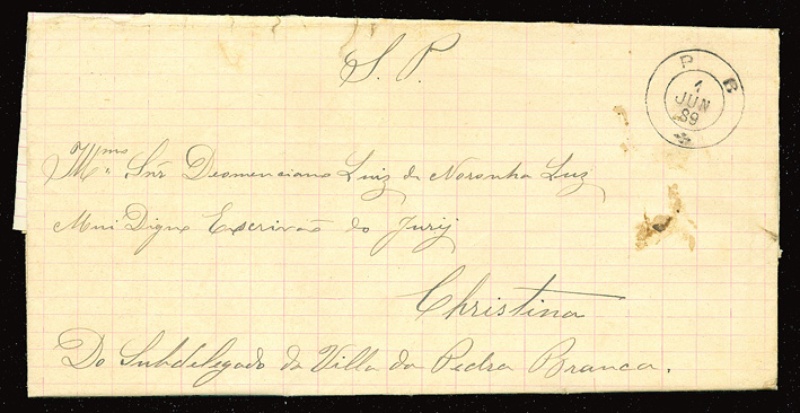 S. P.
P B
1
JUN
89
Illmo. Snr Deomenciano Luiz de Noronha Luz
Mui Digno Escrivão do Jury
Christina
Do Subdelegado da Villa da Pedra Branca.